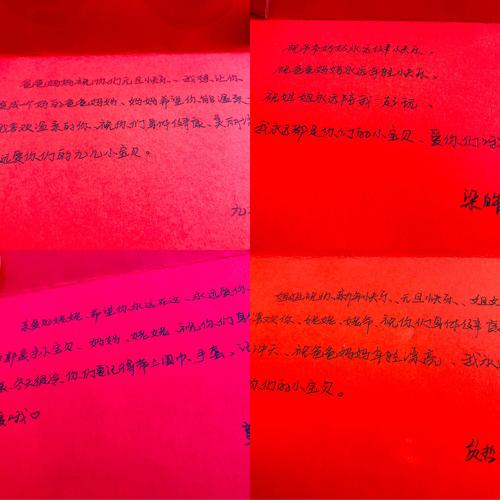 爸爸妈妈祝你们元旦快乐、我想让你
成一个好的爸爸妈妈、妈妈希望你能温柔一
喜欢温柔的你、祝你们身体健康、美丽
远是你们的九儿小宝贝。
九
祝爷爷奶奶永远健康快乐。
祝爸爸妈妈永远年轻快乐。
祝姐姐永远陪我玩。
我永远都是你们的小宝贝、爱你们
梁
亲爱的姥姥、希望你永远在这、永远爱你
都是小宝贝、妈妈、姥姥、祝你们身
冬天很冷、你们要记得带上围巾、手套。
哦♡
姐姐祝你、新年快乐、元旦快乐、姐
喜欢你、姥姥、姥爷、祝你们身体健康
天、祝爸爸妈妈年轻漂亮、我永
你们的小宝贝。
哲